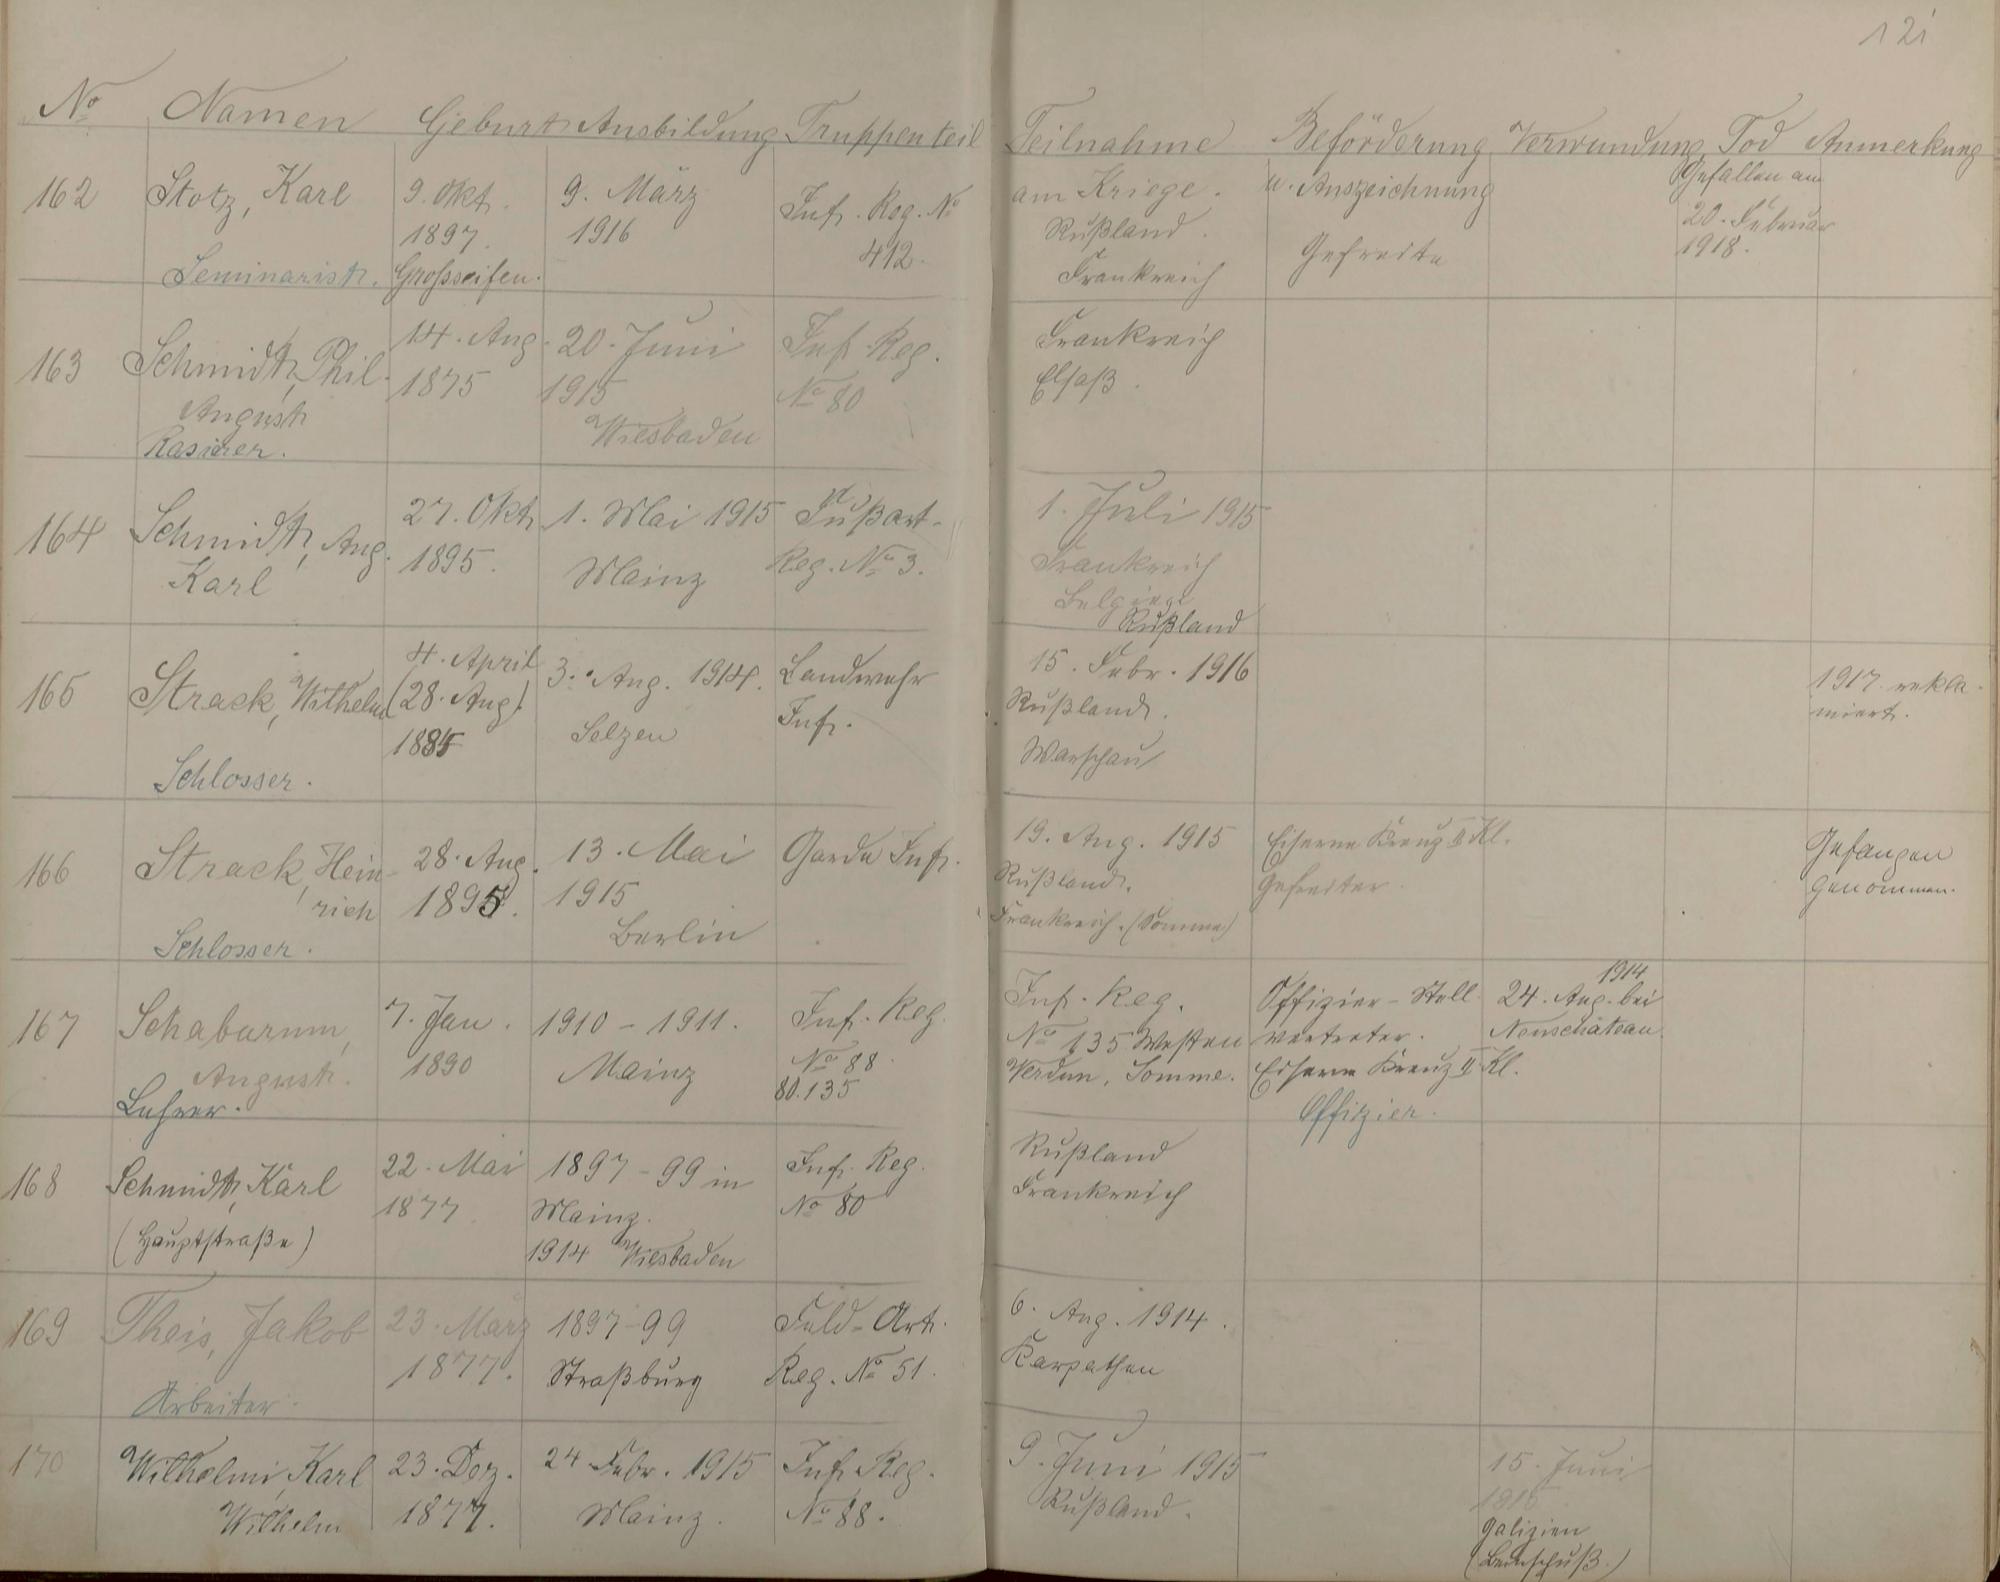 121
No Namen Geburt Ausbildung Truppenteil Teilnahme am Kriege. Beförderung u. Auszeichnung Verwundung Tod Anmerkung
162 Stotz, Karl
Seminarist.
9. Okt.
1897.
Grossseifen.
9. März
1916
Inf. Reg. No
412.
Rußland.
Frankreich
Gefreite
Gefallen am
20. Februar
1918.
163 Schmidt, Phil.
August
Rasierer.
14. Aug.
1875
20. Juni
1915
Wiesbaden
Inf. Reg.
No 80
Frankreich
Elsaß.
164 Schmidt, Aug.
Karl
27. Okt.
1895.
1. Mai 1915
Mainz
Fußart.
Reg. No 3.
1. Juli 1915
Frankreich
Belgien
Rußland
165 Strack, Wilhelm
Schlosser.
4. April
(28. Aug.)
1884
3. Aug. 1914.
Selzen
Landwehr
Inf.
15. Febr. 1916
Rußland.
Warschau
1917 rekla-
miert.
166 Strack, Hein-
rich
Schlosser.
28. Aug.
1895.
13. Mai
1915
Berlin
Garde Inf.
19. Aug. 1915
Rußland.
Frankreich. (Somme)
Eiserne Kreuz II Kl.
Gefreiter.
Gefangen
genommen.
167 Schaburum,
August.
Lehrer.
7. Jan.
1890
1910 - 1911.
Mainz
Inf. Reg.
No 88.
80. 135
Inf. Reg.
No 135 Westen
Verdun, Somme.
Offizier-Stell
vertreter.
Eiserne Kreuz II Kl.
Offizier.
1914
24. Aug. bei
Neuschateau
168 Schmidt, Karl
(Hauptstraße)
22. Mai
1877
1897-99 in
Mainz.
1914 Wiesbaden
Inf. Reg.
No 80
Rußland
Frankreich
169 Theis, Jakob
Arbeiter.
23. März
1877.
1897-99
Straßburg
Feld-Art.
Reg. No 51.
6. Aug. 1914.
Karpathen
170 Wilhelmi, Karl
Wilhelm
23. Dez.
1877.
24 Febr. 1915
Mainz.
Inf. Reg.
No 88.
9. Juni 1915
Rußland.
15. Juni
1915
Galizien
(Beinschuß.)